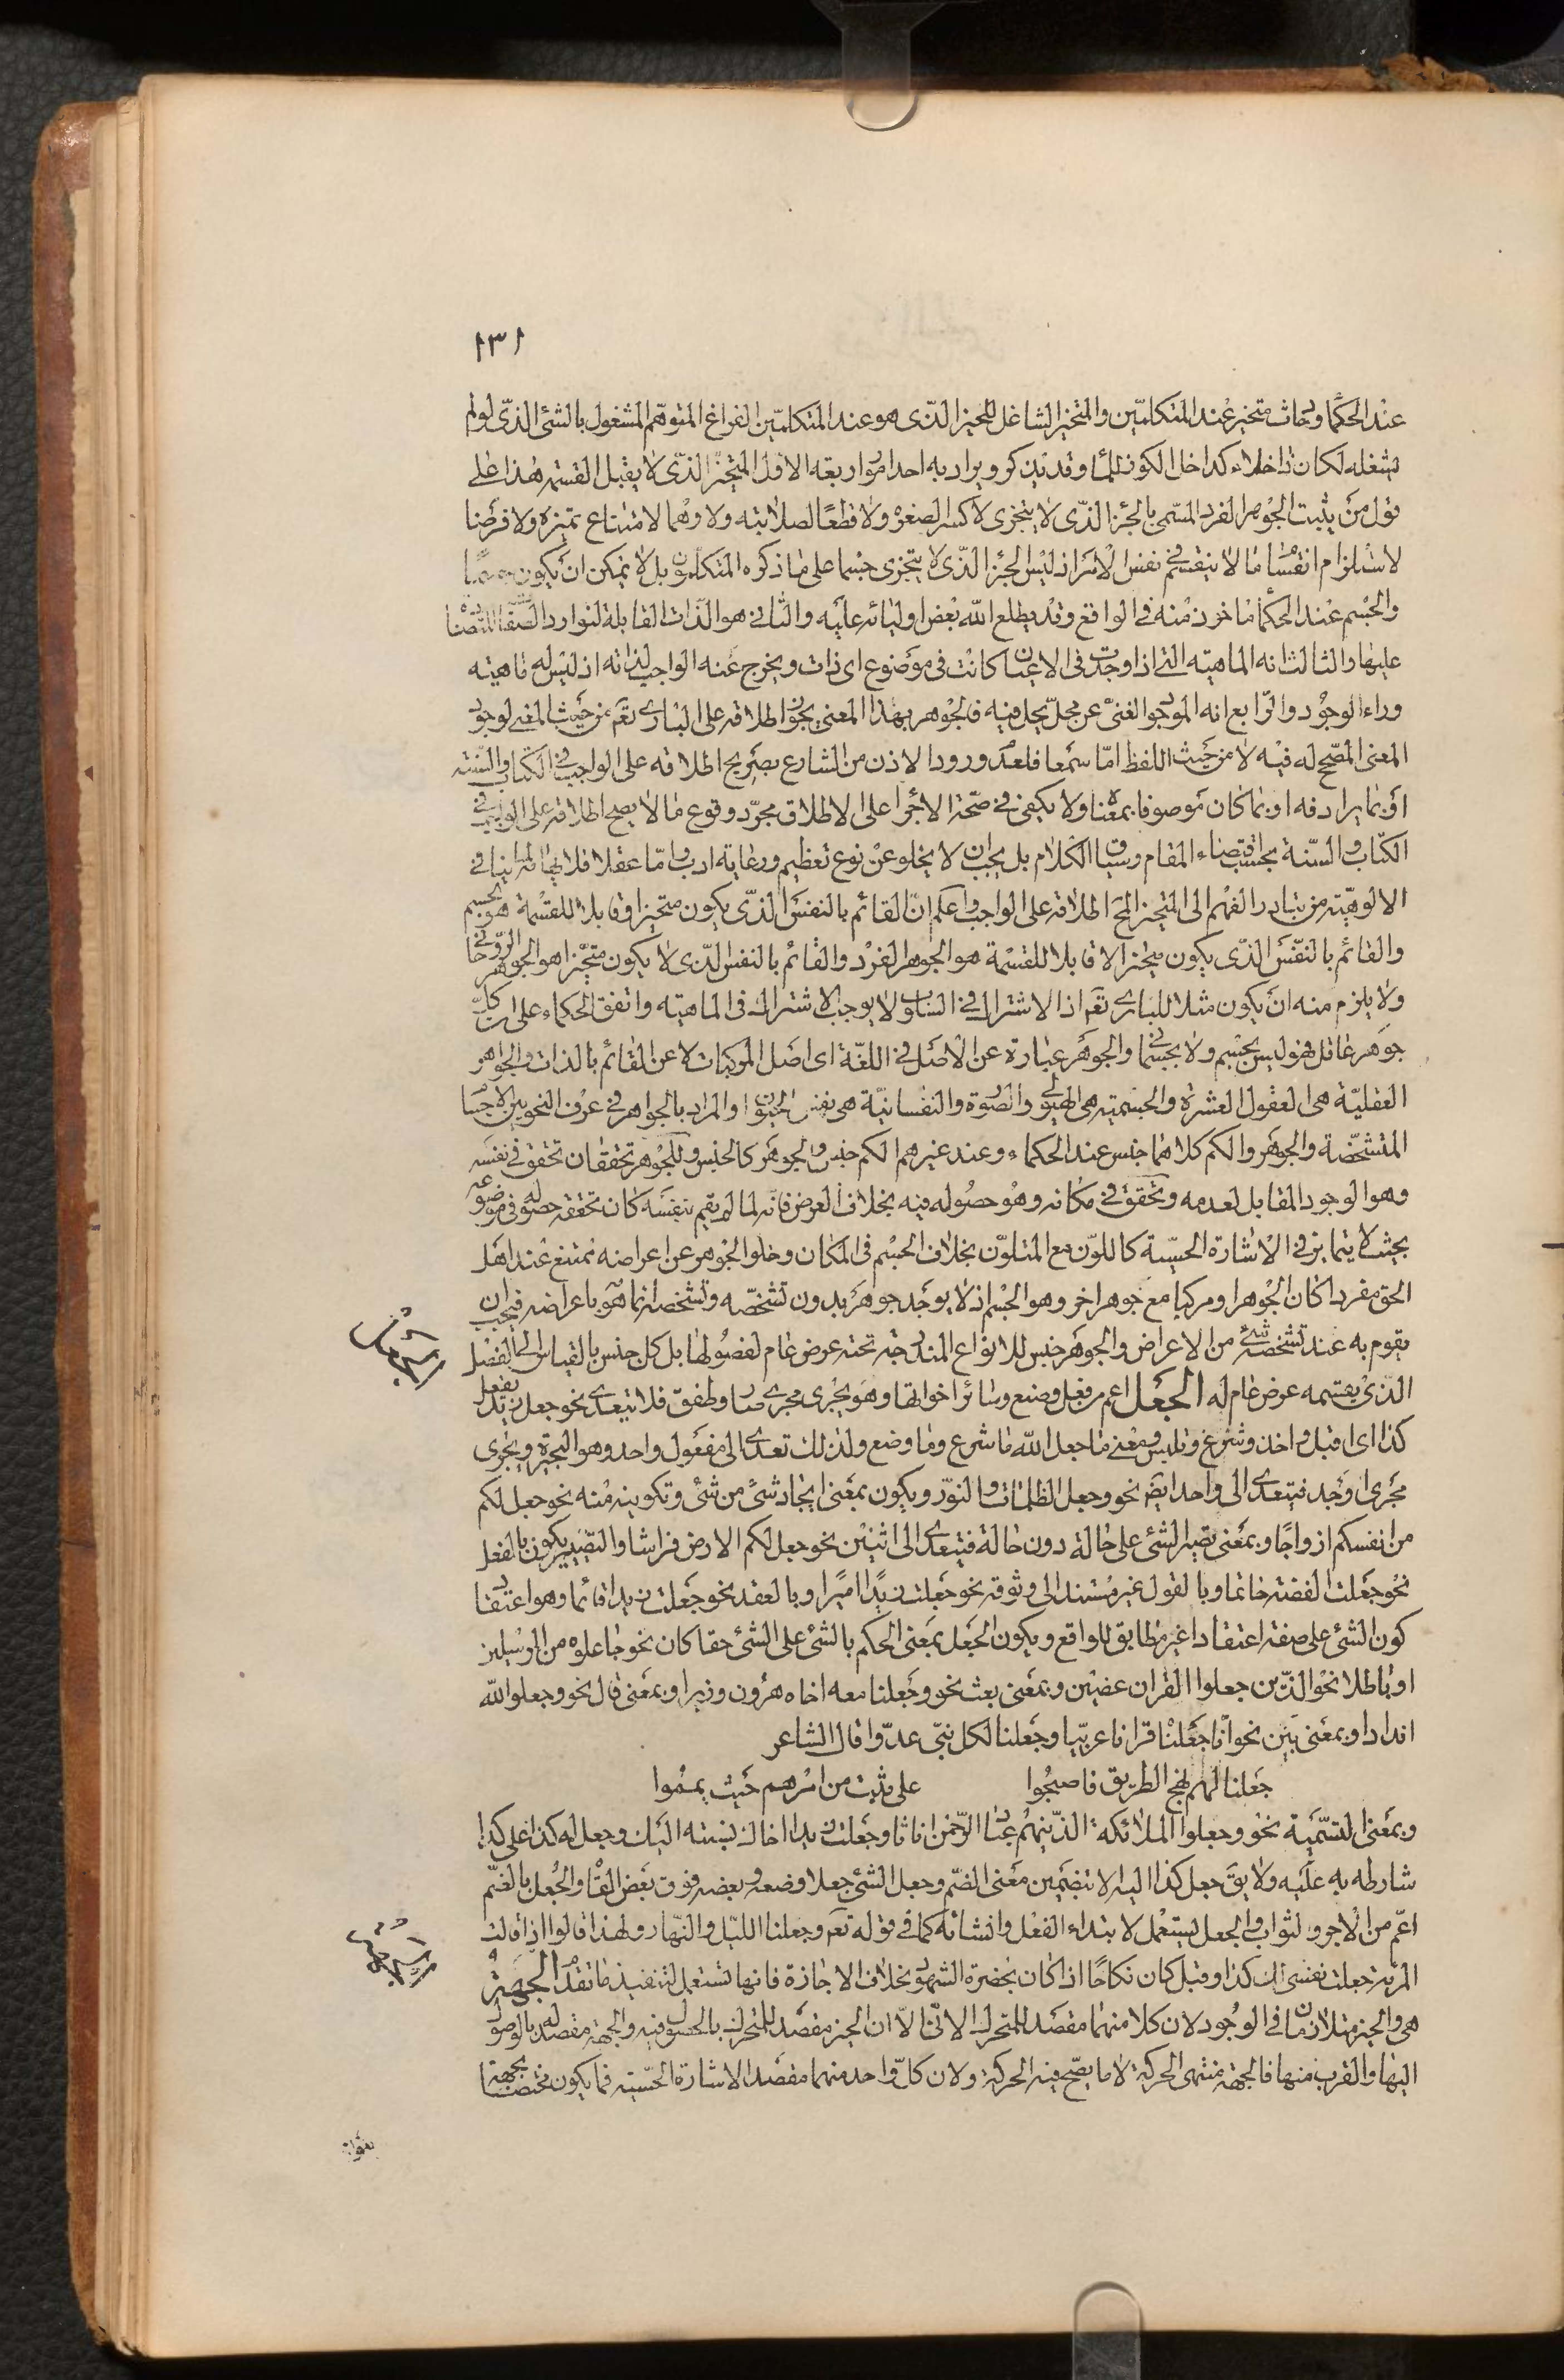 ١٣١
عند الحكما وحادث متحيز عند المتكلمين والمتحيز الشاغل للحيز الذى هو عند المتكلمين الفراغ المتوهم المشغول بالشئ الذى لو لم
يشغله لكان خلاء كداخل الكوز للماء وقد يذكر ويراد به احد امور اربعة الاول المتحيز الذى لا يقبل القسمة هذا على
قول من يثبت الجوهر الفرد المسمى بالجزء الذى لا يتجزى لا كسر الصغره ولا قطعا لصلابته ولا وهما لامتناع تميزه ولا فرضا
لاستلزام انقسام ما لا ينقسم فى نفس الامر اذ ليس الجزء الذى لا يتجزى جسما على ما ذكره المتكلمون بل لا يمكن ان يكون جسما
والجسم عند الحكما ماخوذ منه فى الواقع وقد يطلع الله بعض اوليائه عليه والثانى هو الذات القابلة لتوارد الصفات المتضادة
عليها والثالث انه الماهية التى اذا وجدت فى الاعيان كانت فى موضوع اى ذات ويخرج عنه الواجب لذاته اذ ليس له ماهية
وراء الوجود والرابع انه الموجود الغنى عن محل يحل فيه فالجوهر بهذا المعنى يجوز اطلاقه على البارى تعم من حيث المعنى لوجود
المعنى المصحح له فيه لا من حيث اللفظ اما سمعا فلعدم ورود الاذن من الشارع بصريح اطلاقه على الواجب فى الكتاب والسنة
او بما يرادفه او بما كان موصوفا بمعناه ولا يكفى فى صحة الاجراء على الاطلاق مجرد وقوع ما لا يصح اطلاقه على الواجب فى
الكتاب والسنة بحسب اقتضاء المقام وسياق الكلام بل يجب ان لا يخلو عن نوع تعظيم ورعاية ادب واما عقلا فلايهامه لما ينافى
الالوهية من تبادر الفهم الى المتحيز المح اطلاقه على الواجب واعلم ان القائم بالنفس الذى يكون متحيزا وقابلا للقسمة هو الجسم
والقائم بالنفس الذى يكون متحيزا لا قابلا للقسمة هو الجوهر الفرد والقائم بالنفس الذى لا يكون متحيزا هو الجوهر الروحانى
ولا يلزم منه ان يكون مثلا للبارى تعم اذ الاشتراك فى السلوب لا يوجب الاشتراك فى الماهية واتفق الحكماء على ان كل
جوهر عاقل فهو ليس بجسم ولا بجسمانى والجوهر عبارة عن الاصل فى اللغة اى اصل المركبات لا عن القائم بالذات والجواهر
العقلية هى العقول العشرة والجسمية هى الهيولى والصورة والنفسانية هى نفس الحيوان والمراد بالجواهر فى عرف النحويين الاجسام
المتشخصة والجوهر والكم كلاهما جنس عند الحكماء وعند غيرهم الكم جنس والجوهر كالجنس وللجوهر تحققان تحقق فى نفسه
وهو الوجود المقابل لعدمه وتحقق فى مكانه وهو حصوله فيه بخلاف العرض فانه لما لم يقم بنفسه كان تحققه حصوله فى موضوعه
بحيث لا يتمايز فى الاشارة الحسية كاللون مع المتلون بخلاف الجسم فى المكان وخلو الجوهر عن اعراضه ممتنع عند اهل
الحق مفردا كان الجوهر او مركبا مع جوهر اخر وهو الجسم اذ لا يوجد جوهر بدون تشخصه وتشخصه انما هو باعراضه فيجب ان
يقوم به عند تشخصه شئ من الاعراض والجوهر جنس للانواع المندرجة تحته عرض عام لفصولها بل كل جنس بالقياس الى الفصل
الذى يقسمه عرض عام له الجعل اعم من فعل وصنع وسائر اخواتها وهو يجرى مجرى صار وطفق فلا يتعدى نحو جعل زيد يفعل
كذا اى اقبل واخذ وشرع وتلبس ومعنى ما جعل الله ما شرع وما وضع ولذلك تعدى الى مفعول واحد وهو البحيرة ويجرى
مجرى اوجد فيتعدى الى واحد ايض نحو وجعل الظلمات والنور ويكون بمعنى ايجاد شئ من شئ وتكوينه منه نحو جعل لكم
من انفسكم ازواجا وبمعنى تصيير الشئ على حالة دون حالة فيتعدى الى اثنين نحو جعل لكم الارض فراشا والتصيير يكون بالفعل
نحو جعلت الفضة خاتما وبالقول غير مستند الى وثوقه نحو جعلت زيدا اميرا وبالعقد نحو جعلت زيدا قائما وهو اعتقاد
كون الشئ على صفة اعتقادا غير مطابق للواقع ويكون الجعل بمعنى الحكم بالشئ على الشئ حقا كان نحو جاعلوه من المرسلين
او باطلا نحو الذين جعلوا القران عضين وبمعنى بعث نحو وجعلنا معه اخاه هرون وزيرا وبمعنى قال نحو وجعلوا لله
اندادا وبمعنى بين نحو انا جعلنا قرانا عربيا وجعلنا لكل نبى عدوا قال الشاعر
جعلنا لهم نهج الطريق فاصبحوا على ثبت من امرهم حيث يمموا
وبمعنى التسمية نحو وجعلوا الملائكة الذين هم عباد الرحمن اناثا وجعلت زيدا اخاك نسبته اليك وجعل له كذا على كذا
شارطه به عليه ولا يق جعل كذا اليه الا بتضمين معنى الضم وجعل الشئ جعلا وضعه وبعضه فوق بعض القاه والجعل بالضم
اعم من الاجر والثواب والجعل يستعمل لابتداء الفعل وانشائه كما فى قوله تعم وجعلنا الليل والنهار ولهذا قالوا اذا قالت
المرئة جعلت نفسى لك كذا وقبل كان نكاحا اذا كان بحضرة الشهود بخلاف الاجازة فانها تستعمل لتنفيذ ما تقدم الجهة
هى والحيز متلازمان فى الوجود لان كلا منهما مقصد للمتحرك الاينى الا ان الحيز مقصد للمتحرك بالحصول فيه والجهة مقصد له بالوصول
اليها والقرب منها فالجهة منتهى الحركة لا ما يصح فيه الحركة ولان كل واحد منهما مقصد الاشارة الحسية فما يكون مختصا بجهة